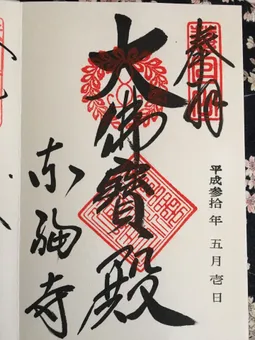 奉拝
平成参拾年五月壱日
大佛寶殿
東福寺